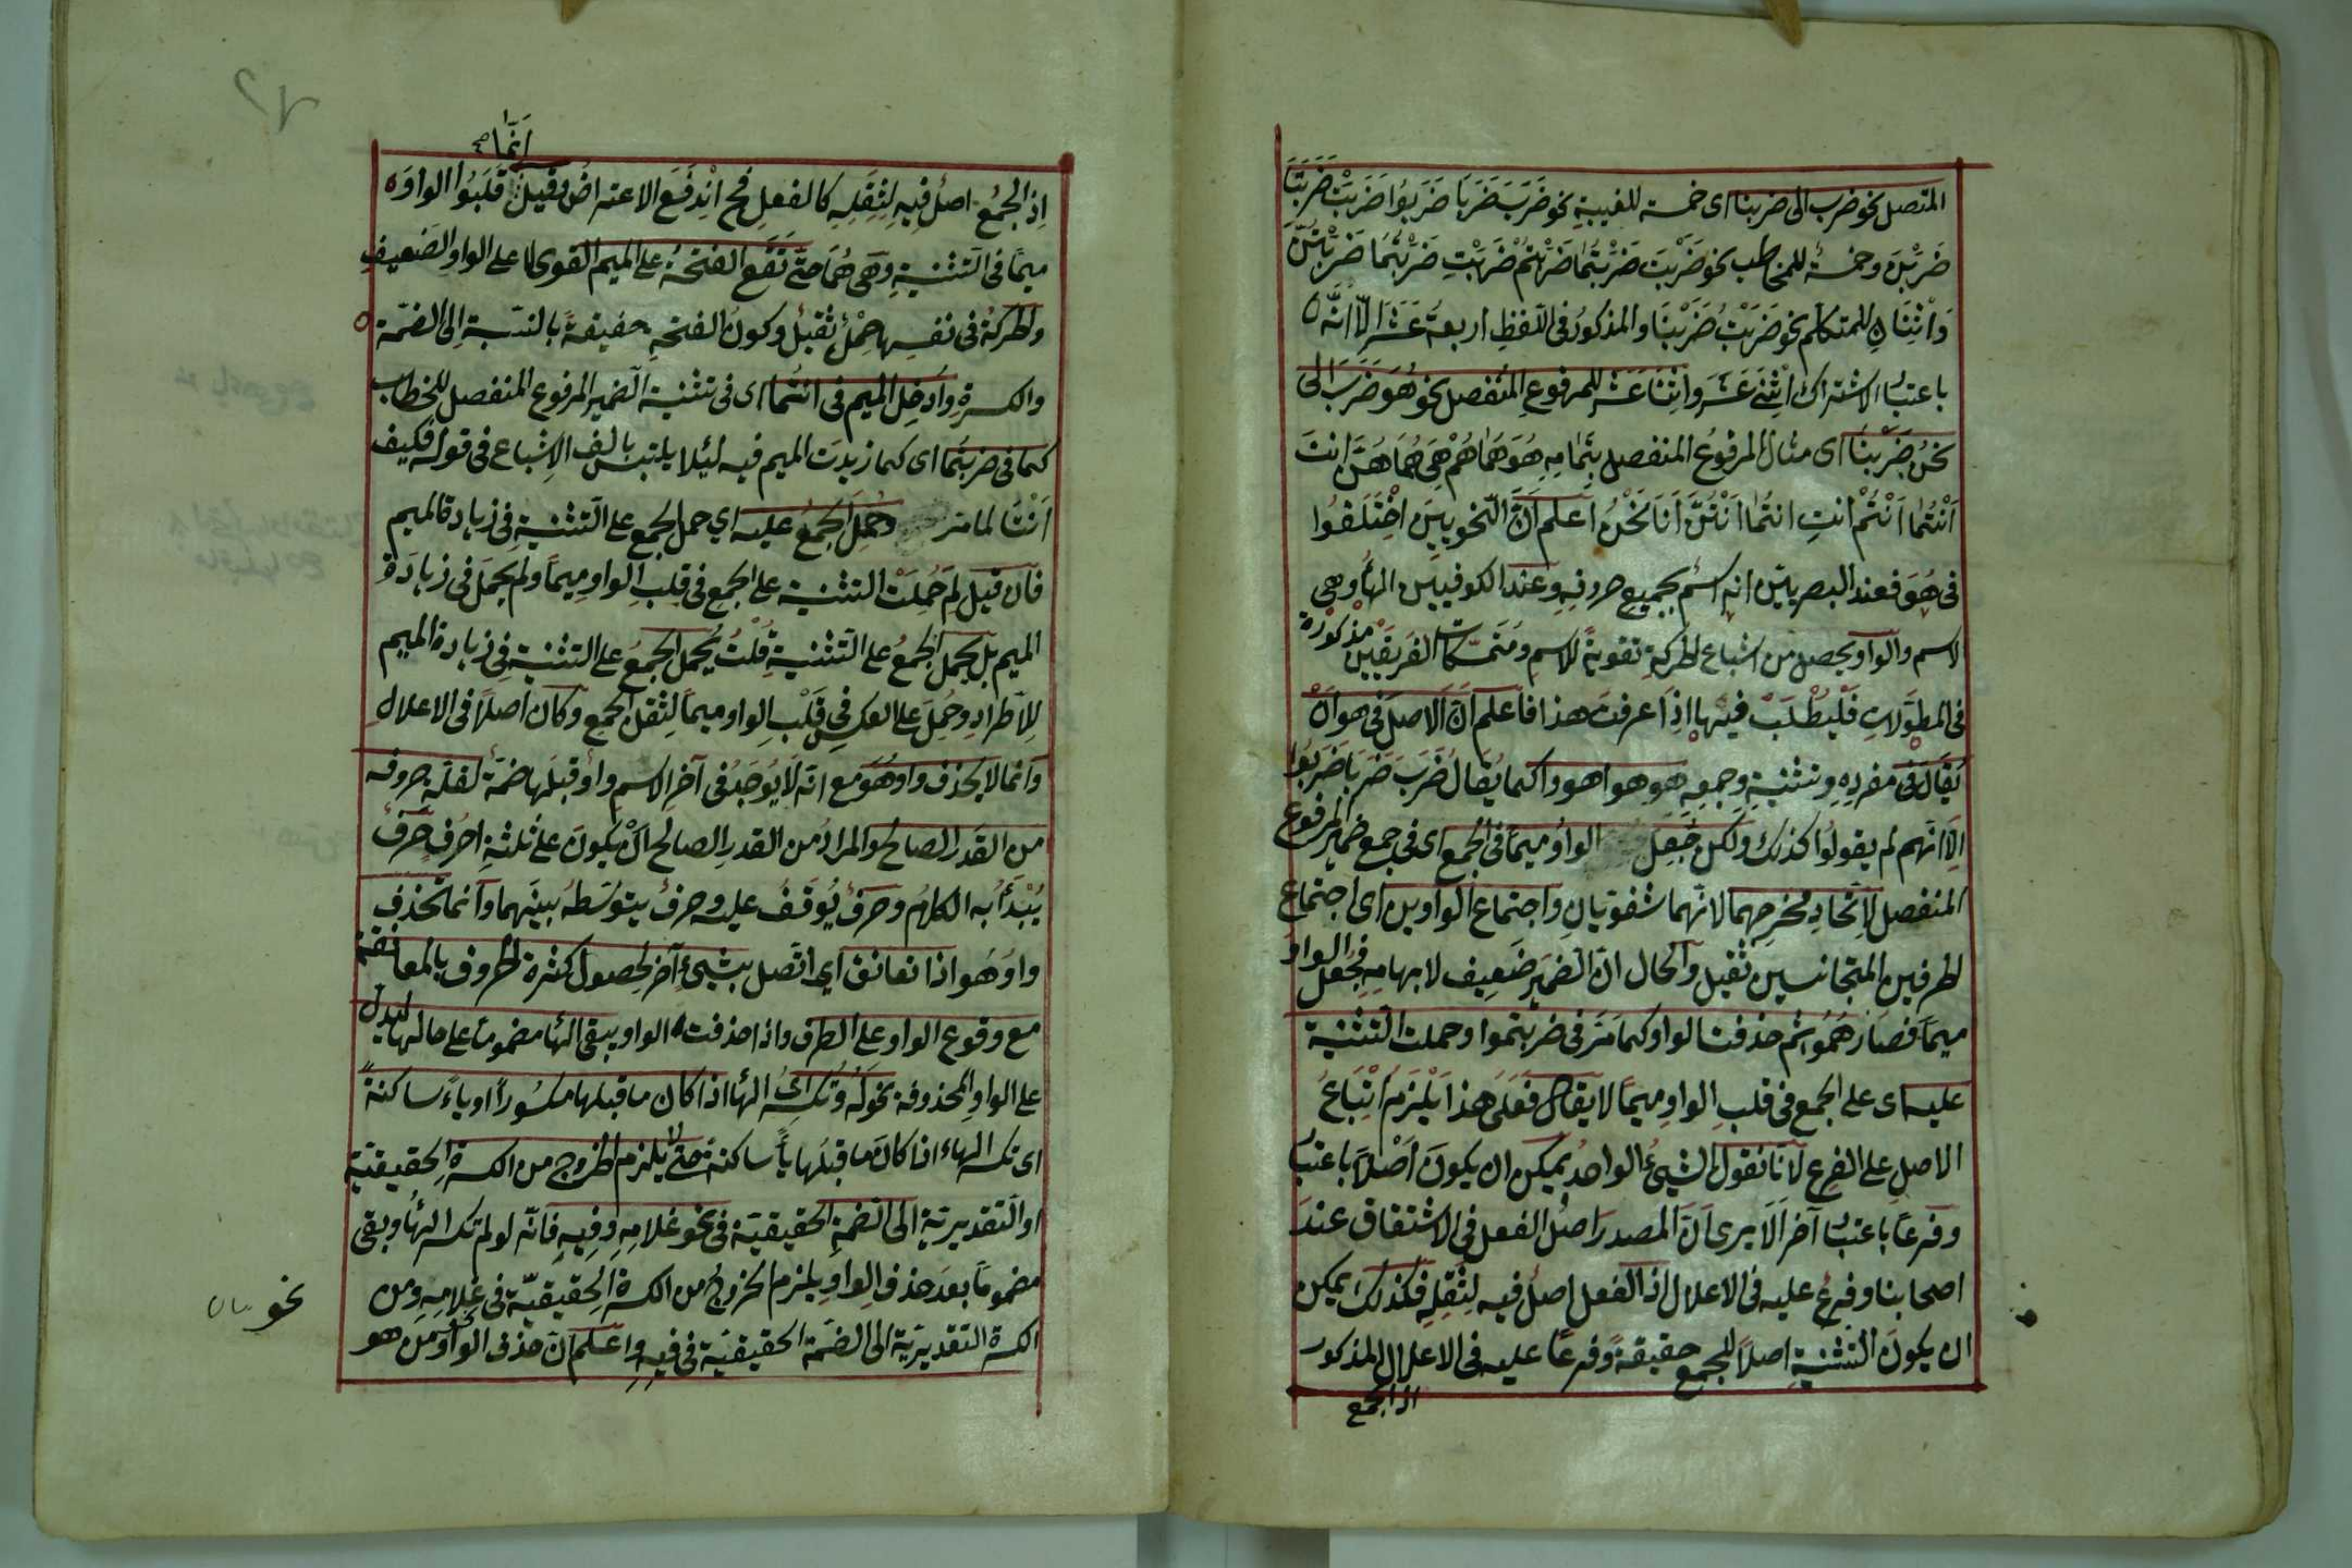 المتصل نحو ضرب الى ضربنا اى خمسة للغيبة نحو ضَرَبَ ضَرَبَا ضَرَبُوا ضَرَبَتْ ضَرَبَتَا
ضَرَبْنَ وخمسة للمخاطب نحو ضَرَبْتَ ضَرَبْتُمَا ضَرَبْتُمْ ضَرَبْتِ ضَرَبْتُمَا ضَرَبْتُنَّ
وَاثْنَانِ للمتكلم نحو ضَرَبْتُ ضَرَبْنَا والمذكورُ فى اللفظِ اربعةَ عَشَرَ اِلَّا انَّه
باعتبار الاشتراك اثْنَىْ عَشَرَ واثْنَا عَشَر للمرفوعِ المنفصل نحو هُوَ ضَرَبَ الى
نحنُ ضَرَبْنَا اى مثال المرفوعُ المنفصل بتمامِهِ هُوَ هُمَا هُمْ هِىَ هُمَا هُنَّ انتَ
اَنْتُمَا اَنْتُمْ انتِ انتُمَا اَنْتُنَّ اَنَا نَحْنُ اعلم اَنَّ النّحويينَ اخْتَلَفُوا
فى هُوَ فعند البصريين انه اسْم بجميع حروفه وعند الكوفيين الهاء وهى
الاسم والواو يحصل من اشباع الحركةِ تقويةً للاسمِ ومُتَمَسَّكَات الفَرِيقَيْن مذكورة
فى المطوّلاتِ فَلْيُطْلَبْ فيها اِذَا عرفتَ هذا فاعلم انّ الاصلَ فى هو اَنْ
يُقَالَ فى مفردِه وتثنيةِ وجمعِه هو هوا هووا كما يُقَالُ ضَرَبَ ضَرَبَا ضَرَبُوا
اِلّا انّهم لم يقولُوا كذلك ولكن جُعِلَ الواوُ ميمًا فى الجمع اى فى جمع ضمير المرفوع
المنفصل لِاتّحادِ مخرجِهما لانّهما شفويّانِ واجتماع الواوين اى اجتماع
لحرفين المتجانسين ثقيل والحال انّ الضمير ضَعِيف لابهامِه فجُعل الواو
ميمًا فصارَ هُمُو ثم حذفت الواو كما مَرَّ فى ضربتموا وحملت التثنية
عليه اى على الجمع فى قلبِ الواوِ ميمًا لا يقال فَعَلَى هذا يَلْزَم اتْبَاعُ
الاصلِ على الفرع لاَنّا نقول الشيئُ الواحدُ يمكن ان يكونَ أَصْلًا باعتبار
وفرعًا باعتبار آخر اَلَا يرى انّ المصدرَ اصلُ الفعل فى الاشتقاق عند
اصحابنا وفرعُ عليه فى الاعلال اذ الفعل اصلُ فيه لِثِقَلِه فكذلك يمكن
ان يكونَ التثنية اصلًا للجمع حقيقةً وفرعًا عليه فى الاعلال المذكور
اذ الجمع
انتما صح
اِذ الجمعُ اصلُ فيه لِثِقَلِه كالفعلِ فح انْدَفَعَ الاعتراضُ وقيلَ قَلَبُوا الواوَ
ميمًا فى التثنيةِ وهى هُمَا حتّى تَقَع الفتحةُ على الميم القوى لا على الواو الضَعيفِ
والحركة فى نفسِها حِمْلُ ثقيلُ وكونُ الفتحةِ خفيفةً بالنسبة اِلى الضمّة
والكسرةِ وادخل الميم فى انتُما اى فى تثنية الضّمير المرفوع المنفصل للخطاب
كما فى ضربتما اى كما زيدت الميم فيه لئلا يلتبس بالف الاِشباع فى قوله فكيف
اَنْتَا لما مر وحُمِلَ الجمعُ عليه اي حمل الجمع على التثنية فى زيادة الميم
فان قيل لِمَ حُمِلَتْ التثنية على الجمعِ فى قلبِ الواو مِيمًا ولم يُحمَل فى زيادة
الميم بل يحملُ الجمعُ على التّثنية قلتُ يُحمل الجمعُ على التثنية فى زيادة الميم
لِلاطرادِ وحُمِلَ على العكس فى قَلْبِ الواو ميمًا لِثقل الجمع وكان اصلًا فى الاعلال
وانما لا يحذف واو هُوَ مع انّه لَا يُوجَدُ فى آخر الاسم واوُ قبلَها ضمّة لقلّة حروفه
من القَدر الصالح والمرادُ من القدر الصالح اَنْ يكونَ على ثلثةِ احرُفٍ حَرفُ
يُبْدَأُ به الكلامُ وحرفُ يُوقَفُ عليه وحرفُ يتوسّطُ بينَهما وانما تحذف
واوُ هُوَ اذا تعانق اى اتّصل بشيئٍ آخر لِحصول كثرة الحروف بالمعانقة
مع وقوع الواو على الطرف واذا حذفت الواو يبقى الهاء مضمومًا على حالها ليدلّ
على الواو المحذوفة نحو لَهُ وتكسر الهاء اذا كان ما قبلها مكسُورًا او ياءً ساكنةً
اى تكسر الهاء اذا كان ما قبلَها ياءً ساكنةً حتّى لا يلزم الخروج من الكسرةِ الحقيقيّة
او التقديريّة الى الضّمةِ الحقيقيّة فى نحو غلامِهِ وفِيهِ فانّه لو لم تكسر الهاءُ وبقى
مضمومًا بعدَ حذف الواو يلزم الخروجُ من الكسرةِ الحقيقيّة فى غلامِه ومن
الكسرة التقديريّة الى الضمّة الحقيقيّة فى فيه واعلم انّ حذف الواو من هو
نحو